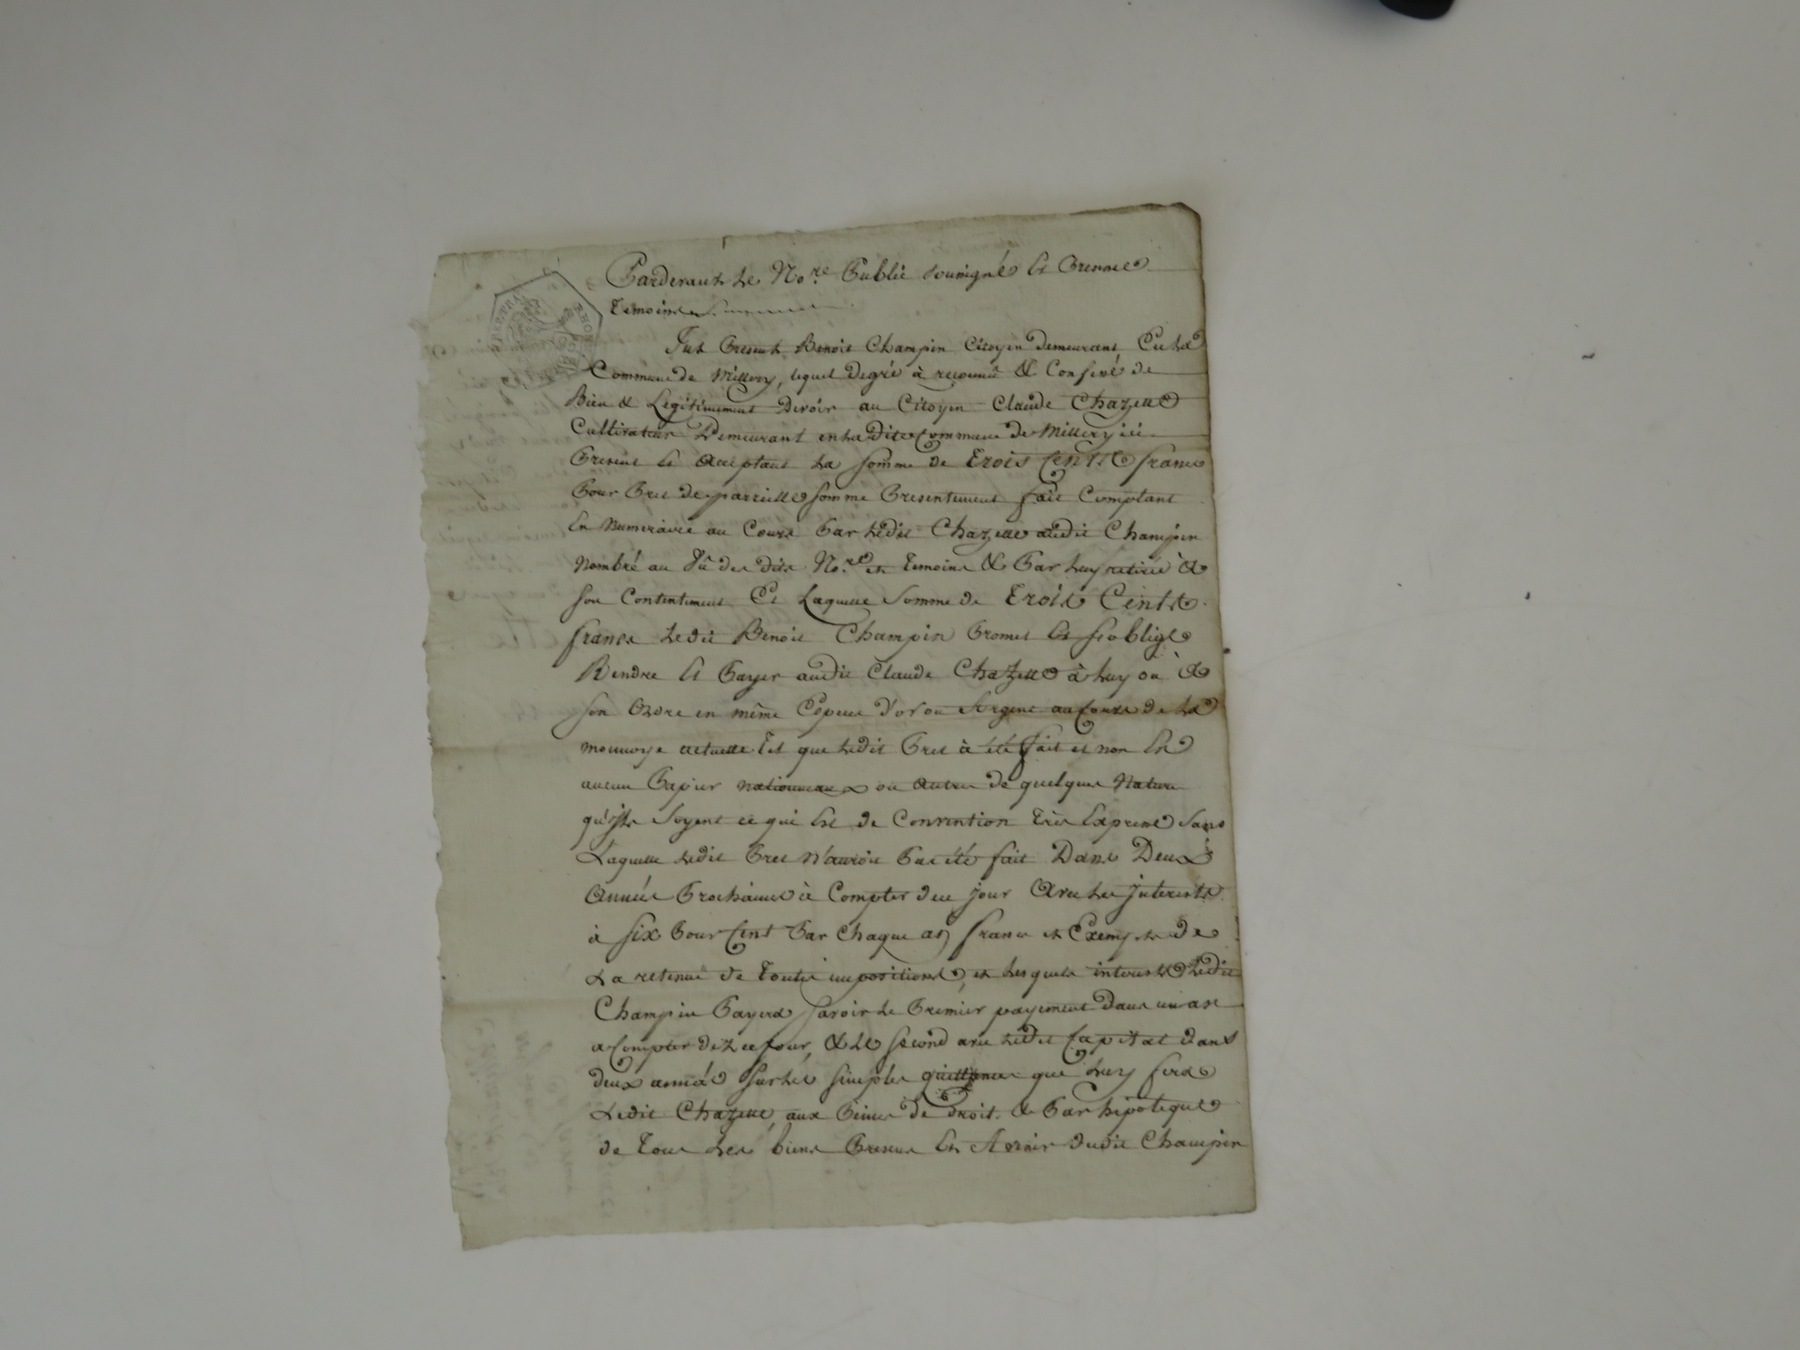 Pardevant Le No.re Public Sousigné Et Presence
Temoins
Fut Present Benoit Champin Citoyen demeurant En La
Commune de Millery, lequel degré à reconnû & Confessé de
Bien & Legitimement Devoir au Citoyen Claude Chazette
Cultivateur Demeurant en La Dite Commune de Millery ici
Present Et Acceptant La Somme de Trois Cents francs
Pour Pret de pareille Somme Presentement fait Comptant
En Numeraire au Cours Par Ledit Chazette audit Champin
Nombré au Vû des dits No.re et Temoins & Par Luy retirée à
Son Contentement Et Laquelle Somme de Trois Cents
francs Ledit Benoit Champin Promet Et S'oblige
Rendre Et Payer audit Claude Chazette à Luy ou à
Son Ordre en même Espece d'or ou Argent au Cours de La
monnoye actuelle Tel que Ledit Pret à été fait et non En
aucun Papier nationnaux ou Autres de quelques Nature
qu'ils Soyent ce qui Est de Convention Très Expresse Sans
Laquelle Ledit Pret N'auroit Pas été fait Dans Deux
Années Prochaines à Compter de ce jour Avec Les jnterests
à Six Pour Cent Par Chaque an francs et Exempts de
La retenue de Toutes impositions, et Lesquels interests Ledit
Champin Payera Savoir Le Premier payement Dans un an
a Compter de ce jour, & Le Second avec Ledit Capital dans
deux années Sur Les Simples quittances que Luy fera
Ledit Chazette, aux Peines de droit. & Par hipoteque
de Tous Les biens Presens Et Avenir dudit Champin